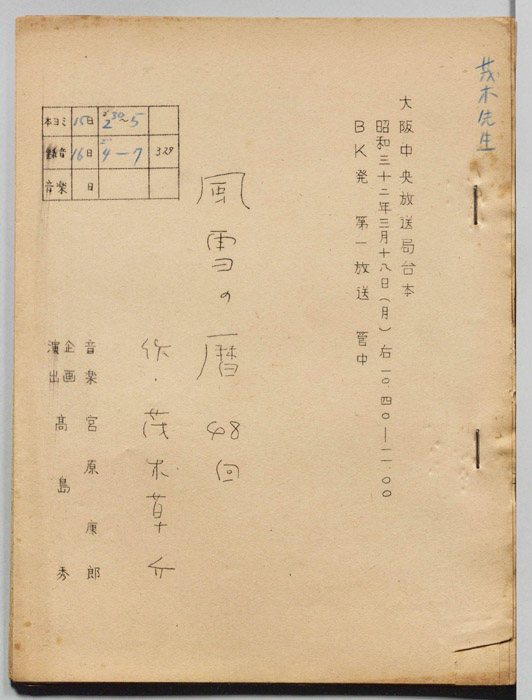 茂木先生
大阪中央放送局台本
昭和三十二年三月十八日（月）右一〇.四〇―一一.〇〇
BK発 第一放送 管中
風雪の暦 48回
作・茂木草介
音楽 宮原康郎
企画
演出 高島秀
本ヨミ 15日 2 30～5
録音 16日 4―7 329
音楽 日